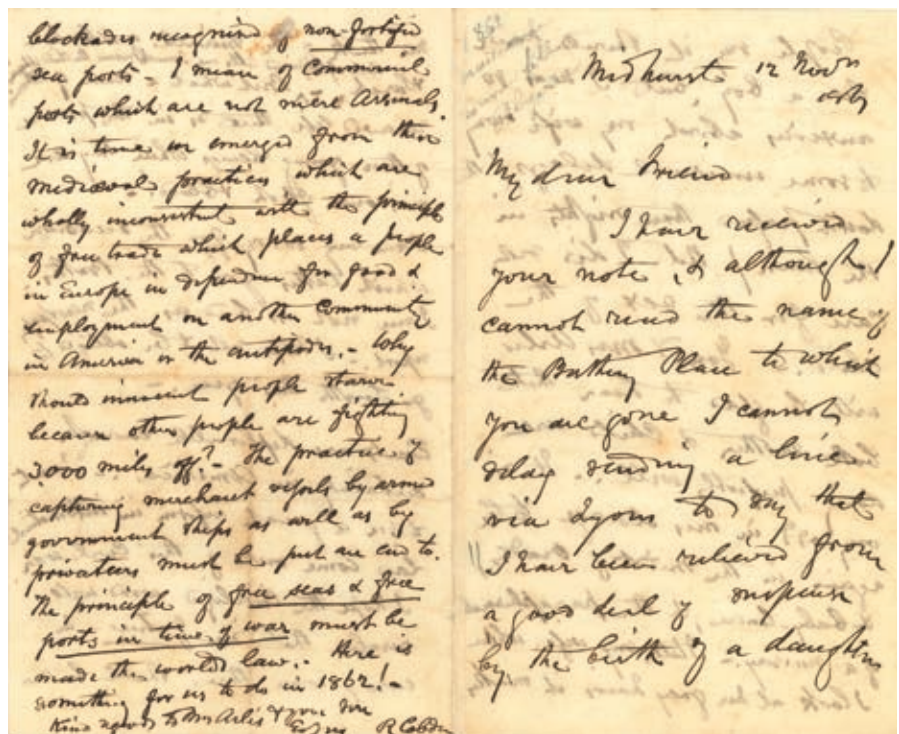 blockades recognized of non-fortified
sea ports - I mean of Commercial
ports which are not mere Arsenals.
It is time we emerged from these
mediæval practices which are
wholly inconsistent with the principle
of free trade which places a people
in Europe in dependence for food &
employment on another Community
in America or the antipodes. - Why
should innocent people starve
because other people are fighting
3000 miles off? - The practice of
capturing merchant vessels by armed
government ships as well as by
privateers must be put an end to.
The principle of free seas & free
ports in time of war must be
made the worlds law. - Here is
something for us to do in 1862! -
Kind regards to Mrs Arlès & your son
R Cobden
Midhurst 12 Novr
My dear Friend
I have received
your note, & although I
cannot read the name of
the Bathing Place to which
you are gone I cannot
delay sending a line
via Lyons to say that
I have been relieved from
a good deal of suspense
by the birth of a daughter